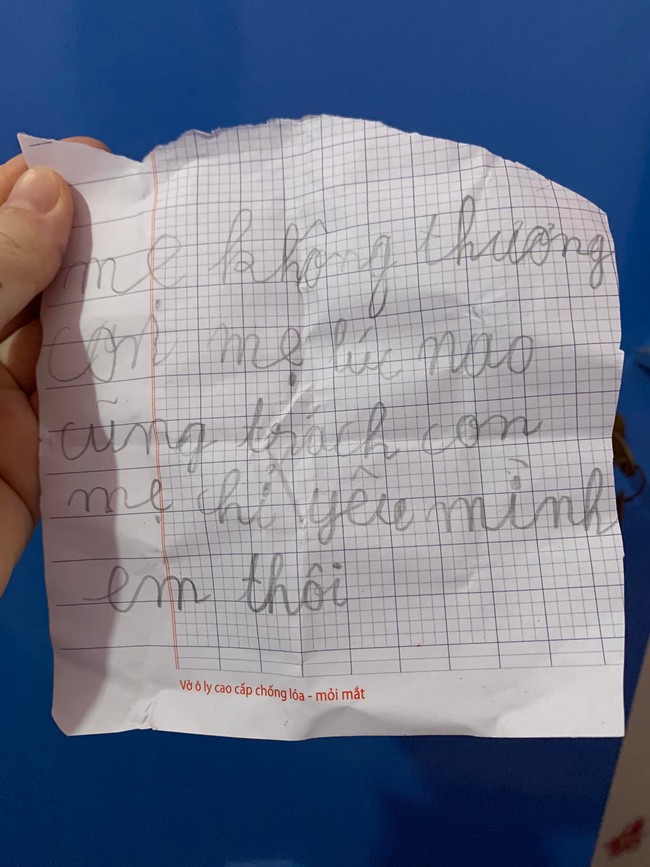 mẹ không thương
con mẹ lúc nào
cũng trách con
mẹ chỉ yêu mình
em thôi
Vở ô ly cao cấp chống lóa - mỏi mắt